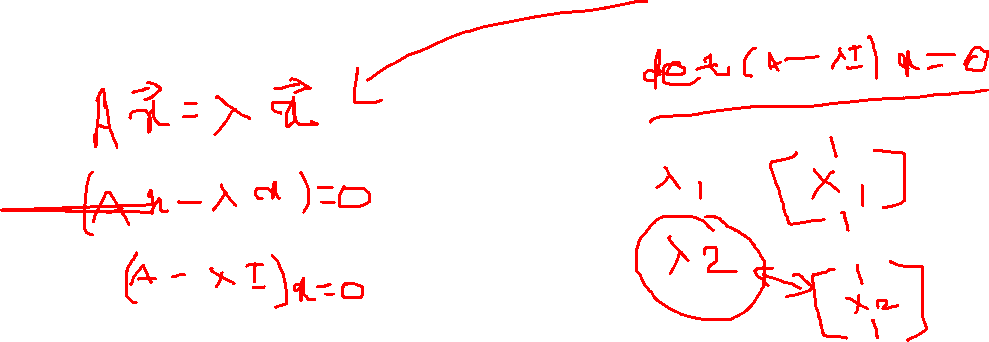 A x⃗ = λ x⃗
(A x − λ x) = 0
(A − λI) x = 0
det(A − λI) x = 0
λ 1 [ x 1 ]
λ 2 [ x 2 ]